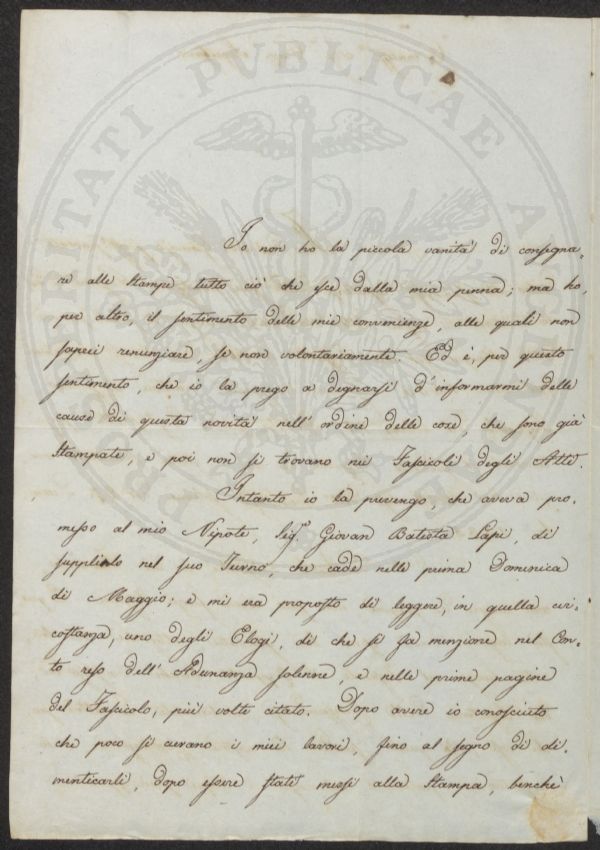 Io non ho la piccola vanità di consegna-
re alle stampe tutto ciò che esce dalla mia penna; ma ho,
per altro, il sentimento delle mie convenienze, alle quali non
saprei renunziare, se non volontariamente. Ed è, per questo
sentimento, che io la prego a degnarsi d'informarmi delle
cause di questa novità nell'ordine delle cose, che sono già
stampate, e poi non si trovano nei Fascicoli degli Atti.
Intanto io la prevengo, che aveva pro-
messo al mio Nipote, Sig.r Giovan Batista Lapi, di
supplirlo nel suo Turno, che cade nella prima Domenica
di Maggio; e mi era proposto di leggere, in quella cir-
costanza, uno degli Elogi, di che si fa menzione nel Con-
to reso dell'Adunanza solenne, e nelle prime pagine
del Fascicolo, più volte citato. Dopo avere io conosciuto
che poco si curano i miei lavori, fino al segno di di-
menticarli, dopo essere stati messi alla stampa, benchè
PROSPERITATI PUBLICAE